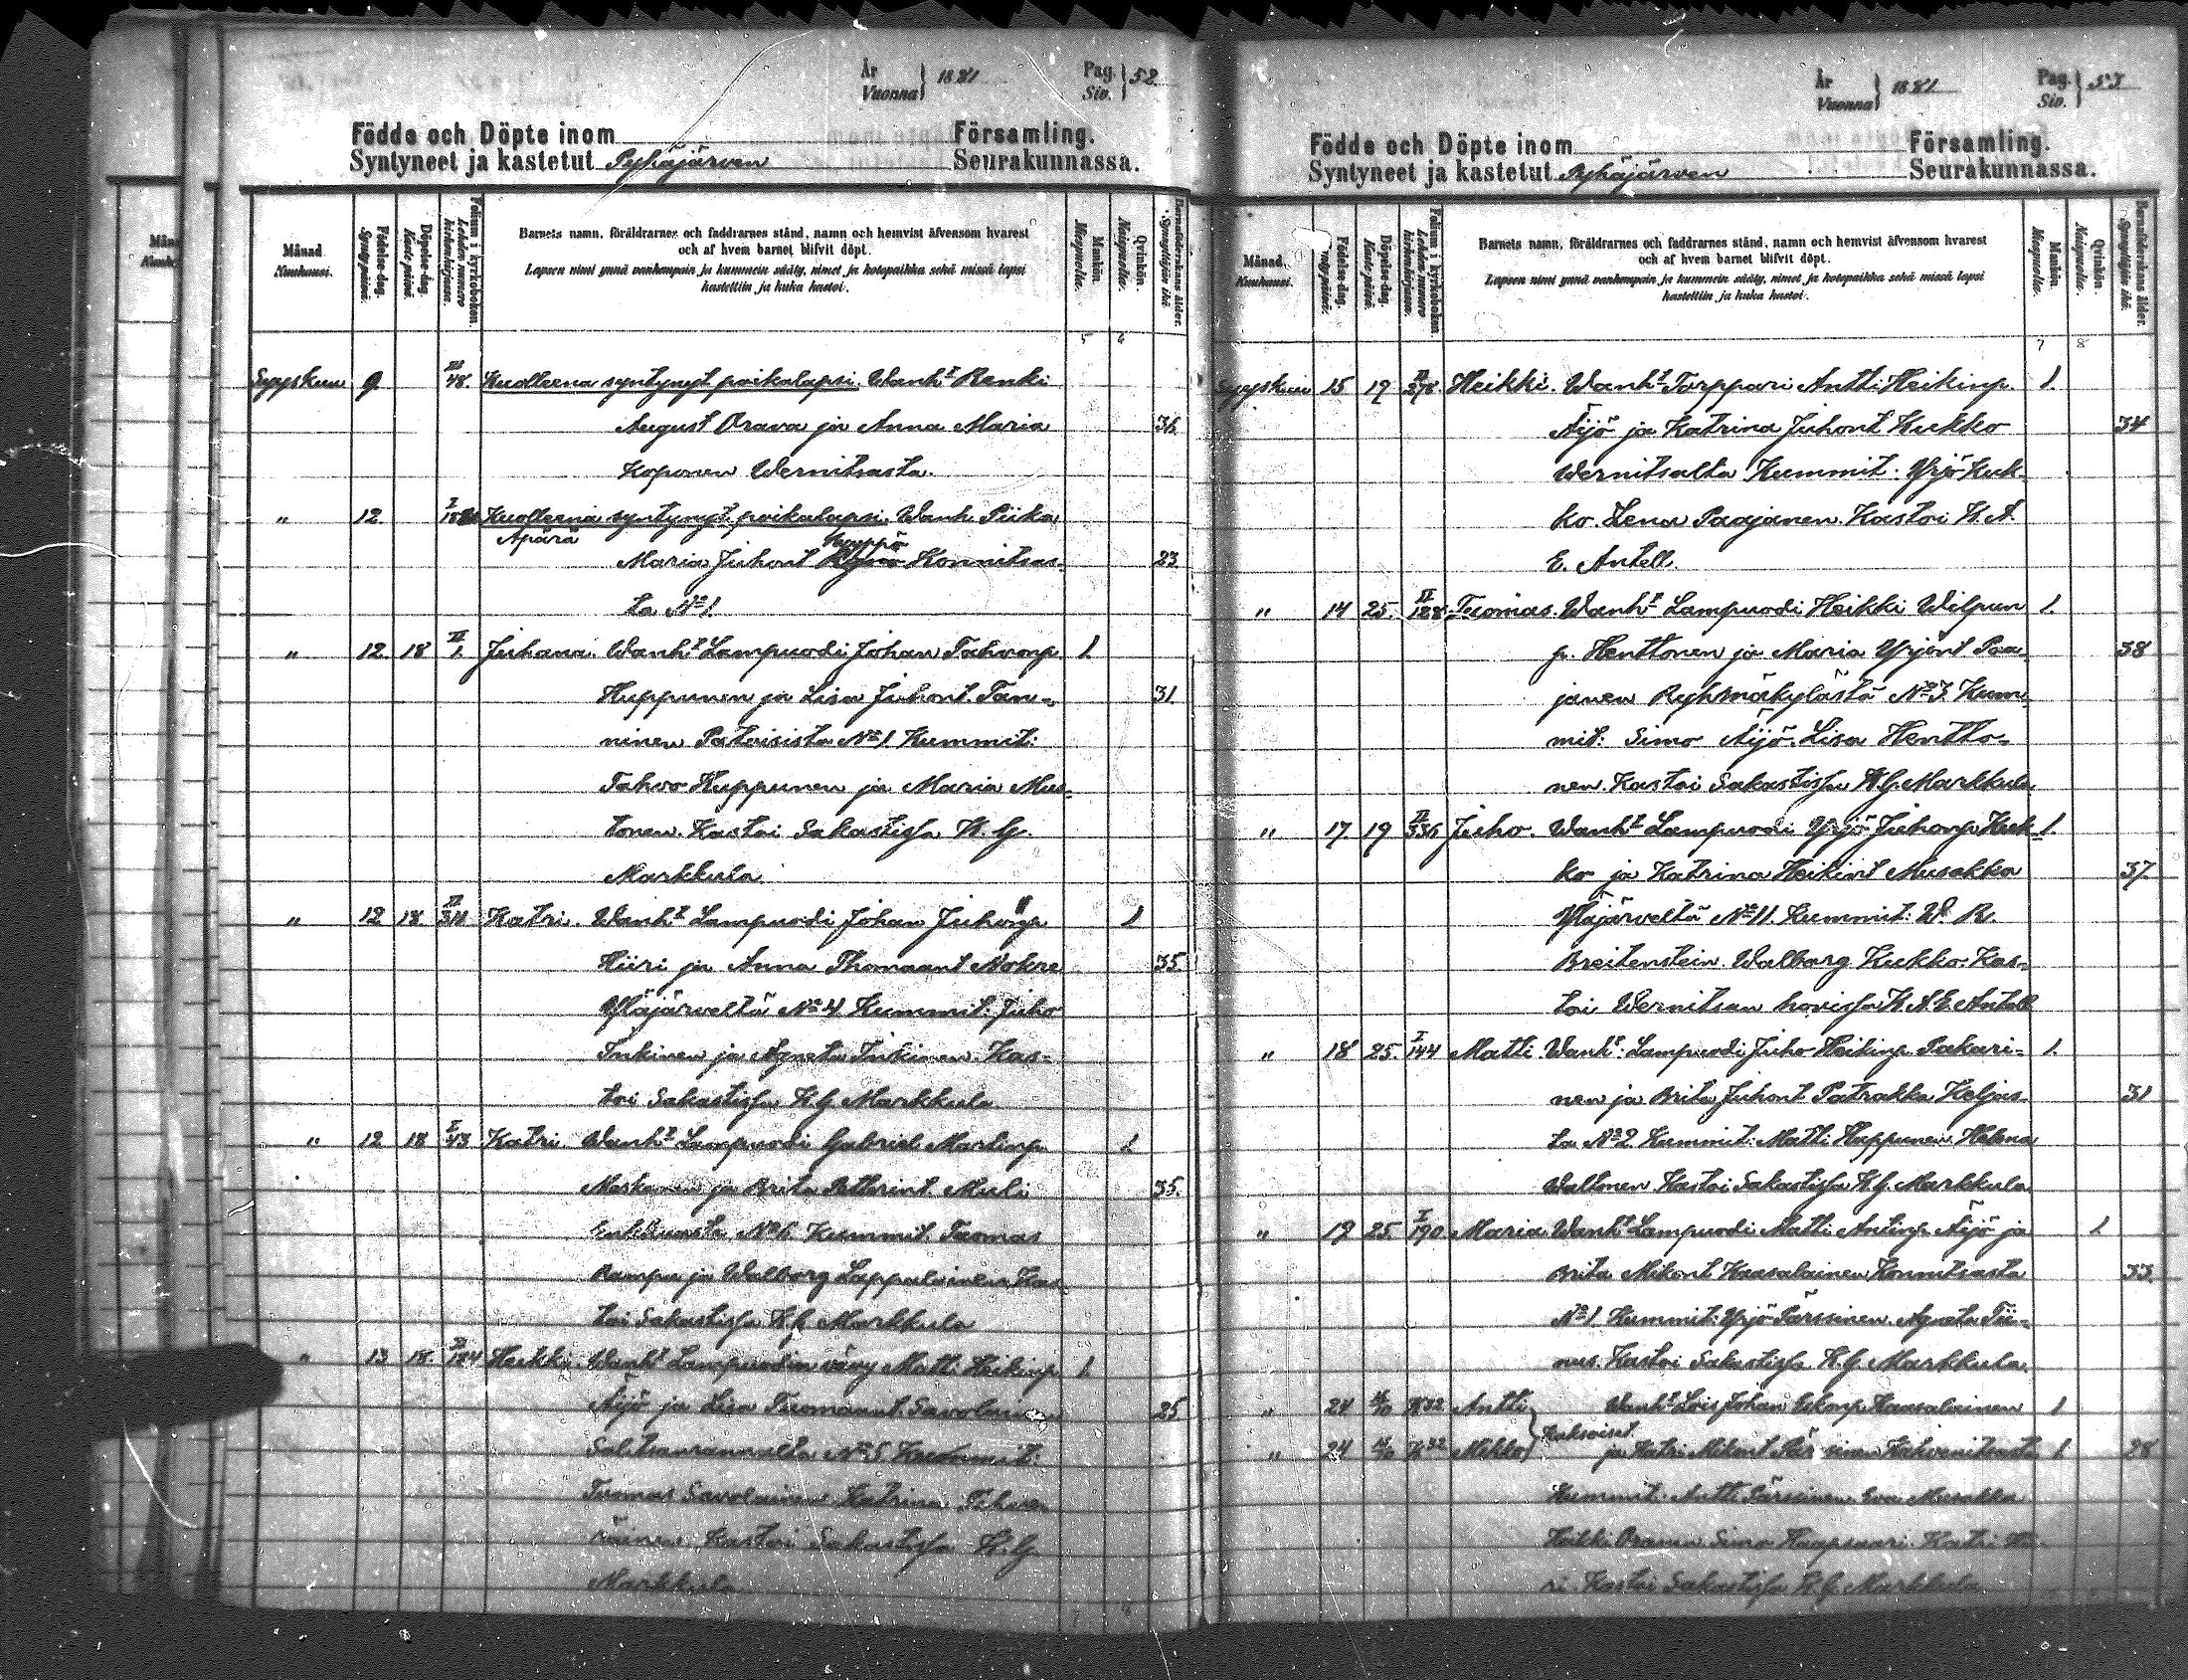 År
Vuonna } 1881
Pag.
Siv. } 52
Födde och Döpte inom Församling.
Syntyneet ja kastetut Pyhäjärven Seurakunnassa.
Månad. Kuukausi.
Födelse-dag. Syntypäivä.
Döpelse-dag. Kaste-päivä.
Folium i kyrkoboken. Lehden numero kirkonkirjassa.
Barnets namn, föräldrarnes och faddrarnes stånd, namn och hemvist äfvensom hvarest
och af hvem barnet blifvit döpt.
Lapsen nimi ynnä vanhempain ja kummein sääty, nimet ja kotopaikka sekä missä lapsi
kastettiin ja kuka kastoi.
Mankön. Miespuolia.
Qvinkön. Naispuolia.
Barnaföderskans ålder. Synnyttäjän ikä.
5 6
Syyskuu 9. II 48. Kuolleena syntynyt poikalapsi. Wanht Renki
August Orava ja Anna Maria 36.
Koponen Wernitsasta.
" 12. I Kuolleena syntynyt poikalapsi. Wanh. Piika
Äpärä
Maria Juhont Konnitsas- 23.
ta No 1.
" 12. 18 II 1. Juhana. Wanht Lampuodi Johan Tahvonp. 1.
Huppunen ja Lisa Juhont. Tan- 31.
ninen Patoisista No 1 Kummit:
Tahvo Huppunen ja Maria Mus-
tonen. Kastoi Sakastissa K. G.
Markkula.
" 12 18 II Katri. Wanht Lampuodi Johan Juhonp 1
Hiiri ja Anna Thomaant Mokre 35.
Yläjärveltä No 4 Kummit: Juho
Inkinen ja Agneta Inkinen. Kas-
toi Sakastissa K. G. Markkula.
" 12 18 I 43 Katri. Wanht Lampuodi Gabriel Martinp. 1.
Moskanen ja Brita Petterint. Muli 35.
No 6. Kummit. Tuomas
Rampu ja Walborg Lappalainen. Kas-
toi Sakastissa K. G. Markkula
" 13 18 184 Heikki. Wanht Lampuodin vävy Matti Heikinp 1.
Äijö ja Lisa Tuomaant. Savolainen 25.
Salitsanrannalta No 5 Kummit:
Tuomas Savolainen Katrina Tihve-
räinen. Kastoi Sakastissa K. G.
Markkula
År
Vuonna } 1881
Pag.
Siv. } 53
Födde och Döpte inom Församling.
Syntyneet ja kastetut Pyhäjärven Seurakunnassa.
Månad. Kuukausi.
Födelse-dag. Syntypäivä.
Döpelse-dag. Kaste-päivä.
Folium i kyrkoboken. Lehden numero kirkonkirjassa.
Barnets namn, föräldrarnes och faddrarnes stånd, namn och hemvist äfvensom hvarest
och af hvem barnet blifvit döpt.
Lapsen nimi ynnä vanhempain ja kummein sääty, nimet ja kotopaikka sekä missä lapsi
kastettiin ja kuka kastoi.
Mankön. Miespuolia.
Qvinkön. Naispuolia.
Barnaföderskans ålder. Synnyttäjän ikä.
7 8
Syyskuu 15 19 II 378. Heikki. Wanht Torppari Antti Heikinp. 1.
Äijö ja Katrina Juhont Kukko 34
Wernitsalta Kummit: Yrjö Kuk-
ko. Lena Paajanen. Kastoi K. A.
E. Antell.
" 14 25. II 188. Tuomas. Wanht Lampuodi Heikki Wilpun 1.
p. Henttonen ja Maria Yrjönt Paa- 38
janen Ryhmäkylästä No 3. Kum-
mit: Simo Äijö. Lisa Hentto-
nen. Kastoi Sakastissa K. G. Markkula
" 17. 19 II 336 Juho. Wanht Lampuodi Yrjö Juhonp. Kuk- 1.
ko ja Katrina Heikint Musakka 37.
Yläjärveltä No 11. Kummit: W. R.
Breitenstein. Walborg Kukko. Kas-
toi Wernitsan hovissa K. A. E. Antell
" 18 25. I 144 Matti. Wanht: Lampuodi Juho Heikinp. Pakari- 1.
nen ja Brita Juhont Patrakka Keljas- 31
ta No 2. Kummit: Matti Huppunen. Helena
Waltonen. Kastoi Sakastissa K. G. Markkula
" 19 25 I 190 Maria. Wanht Lampuodi Matti Antinp Äijö ja 1
Brita Mikont Kaasalainen Konnitsasta 33.
No 1. Kummit: Yrjö Pärssinen. Agneta Tii-
nus. Kastoi Sakastissa K. G. Markkula.
" 24 Antti } Wanht Lois Johan Eskonp. Kaasalainen 1
Kaksoiset.
" 24 Mikko } ja Katri Mikont Pärssinen Kahvenitsasta 1 28
Kummit: Antti Pärssinen. Eva Musakka
Heikki Orava Simo Haapsaari. Katri Hii-
ri. Kastoi Sakastissa K. G. Markkula